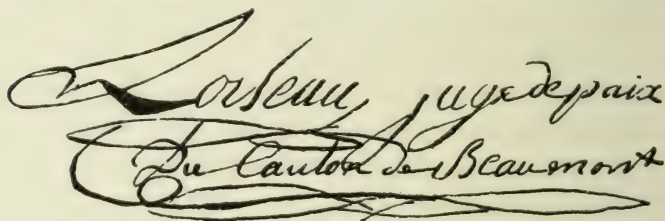 Loiseau, juge de paix
Du Canton de Beaumont